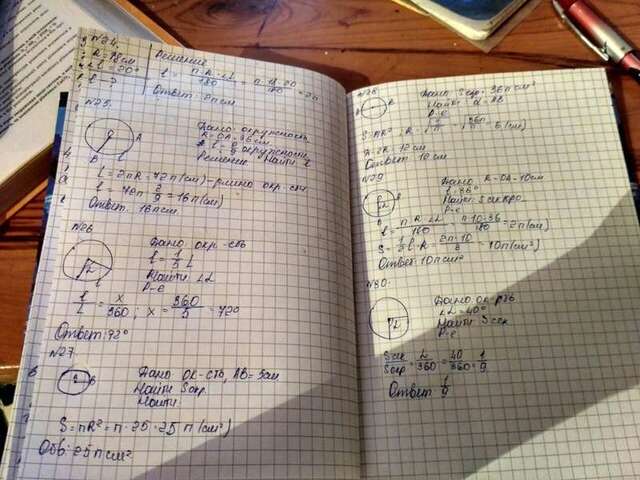 N24.
R = 18см
Решение
l = πR·∠α/180 = π·18·20/180 = 2π
Ответ 2π см.
N25.
A
B
Дано: окружность
R = OA = 36см
l = 2/9 окружности
Решение Найти l
L = 2πR = 72π(см) – длина окр-сти
l = 72π · 2/9 = 16π(см)
Ответ: 16π см.
N26
Дано: окр-сть
l = 1/5 L
Найти ∠α
Р-е
l/L = x/360; x = 360/5 = 72°
Ответ: 72°
N27
B
Дано ок-сть, AB = 5см
Найти Sокр.
Найти
S = πR² = π · 25 = 25 π (см²)
Отв: 25π см²
N28
Дано: Sокр. = 36π см²
Найти d - AB
Р-е
S = πR², R = √S/π = √36π/π = 6(см)
d = 2R = 12см
Ответ 12 см
N29
Дано R = OA = 10см
∠ = 36°
Найти: Sсектора
Р-е
l = πR·∠α/180 = π·10·36/180 = 2π(см)
S = 1/2 l·R = 2π·10/2 = 10π(см²)
Ответ 10π см²
N30.
Дано: ок-сть
∠α = 40°
Найти Sсек
Р-е
Sсек/Sокр = α/360 = 40/360 = 1/9
Ответ 1/9